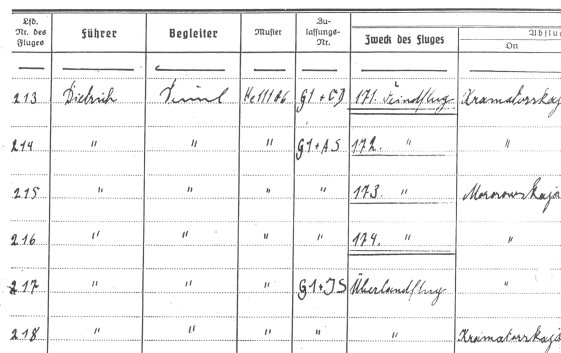 Lfd. Nr. des Fluges Führer Begleiter Muster Zulassungs-Nr. Zweck des Fluges Abflug
Ort
213 Dietrich He 111 H6 G1+CD 171. Feindflug Kramatorskaja
214 " " " G1+AS 172. " "
215 " " " " 173. " Morosowskaja
216 " " " " 174. " "
217 " " " G1+JS Überlandflug "
218 " " " " " Kramatorskaja